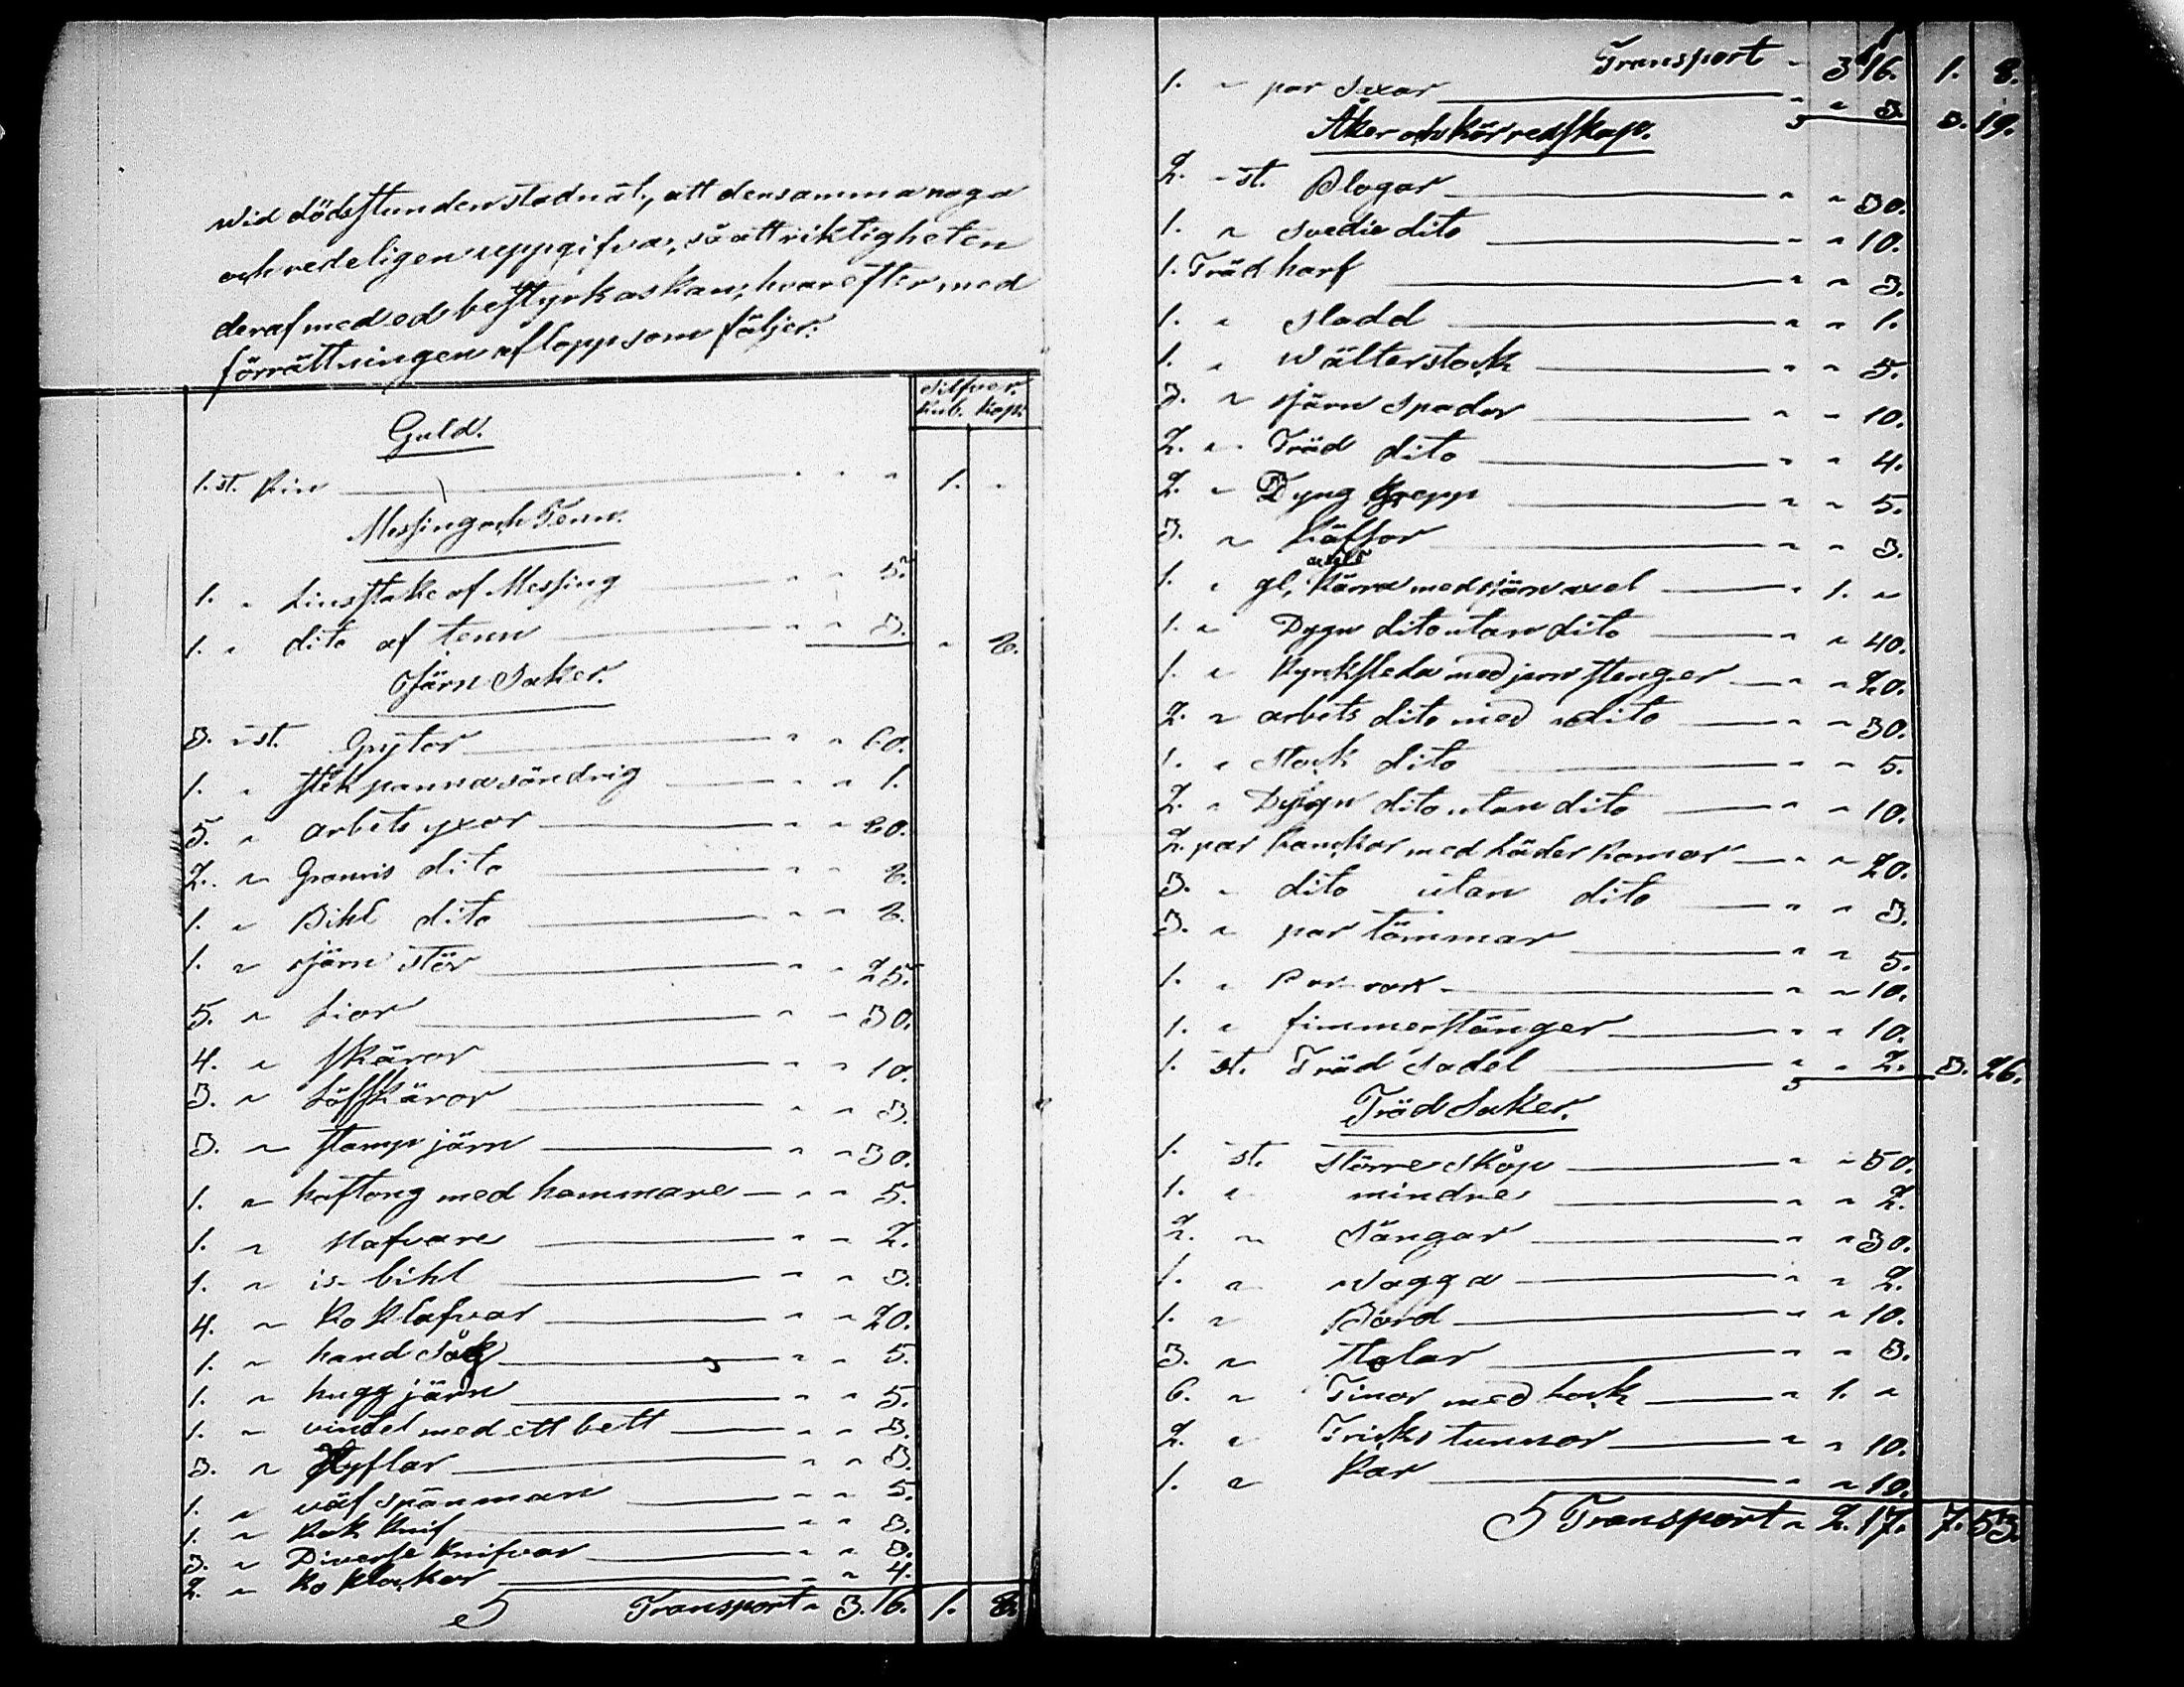 wid dödsstunden stadnat, att densamma noga
och redeligen uppgifva, så att riktigheten
deraf med ed bestyrkas kan, hvarefter med
förrättningen aflopp som följer:
Silfver.
Rub. Kop.
Guld.
1. st. Rin " " " 1. "
Messing och Tenn.
1. " Liusstake af Messing " " 5.
1. " dito af tenn " " 3. " 8.
Järn Saker.
3. st. Grytor " " 60.
1. " stekpanna söndrig " " 1.
5. " arbets yxor " " 20.
2. " Granris dito " " 8.
1. " Bihl dito " " 8.
1. " järn stör " " 25.
5. " Liar " " 30.
4. " skäror " " 10.
3. " Löfskäror " " 3.
3. " stamp järn " " 30.
1. " hoftong med hammare " " 5.
1. " Nafvare " " 2.
1. " is-bihl " " 3.
4. " Ko Klafvar " " 20.
1. " hand såg " " 5.
1. " hugg järn " " 5.
1. " vindel med ett bett " " 3.
3. " Hyflar " " 3.
1. " väf spänman " " 5.
1. " Rak Knif " " 3.
3. " Diverse Knifvar " " 3.
2. " Ko Klockor " " 4.
Transport " 3. 16. 1. 8.
Transport " 3 16. 1. 8.
1. " par Saxar " " 3. 3. 19.
Åker och Körredskap.
2. st. Plogar " " 30.
1. " svedie dito " " 10.
1. Träd harf " " 3.
1. " Sladd " " 1.
1. " Wälterstock " " 5.
3. " järn Spadar " " 10.
2. " Träd dito " " 4.
2. " Dyng Grepp " " 5.
3. " Räffsor " " 3.
1. " gl. Kärra med järn axel " 1. "
1. " Dygn dito utan dito " " 40.
1. " Kyrksleda med jern stenger " " 20.
2. " arbets dito med dito " " 30.
1. " Stock dito " " 5.
2. " Dygn dito utan dito " " 10.
2. par Rankor med Läder Romar " " 20.
3. " dito utan dito " " 3.
3. " par tömmar " " 5.
1. " " " 10.
1. " fimmerstänger " " 10.
1. st. Träd Sadel " " 2. 3. 26.
Träd Saker.
1. st. Större Skåp " " 50.
1. " mindre " " 2.
2. " Sängar " " 30.
1. " Wagga " " 2.
1. " Bord " " 10.
3. " Stolar " " 3.
6. " Tinor med Lock " 1. "
2. " Dricks tunnor " " 10.
1. " Kar " " 10.
Transport " 2. 17. 7. 53.